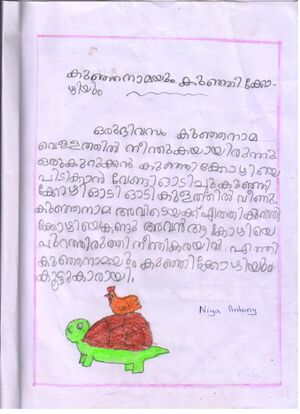 കുഞ്ഞനാമയും കുഞ്ഞി ക്കോ-
ഴിയും
ഒരുദിവസം കുഞ്ഞനാമ
വെള്ളത്തിൽ നീന്തുകയായിരുന്നു.
ഒരുകുറുക്കൻ കുഞ്ഞി ക്കോഴിയെ
പിടിക്കാൻ വേണ്ടി ഓടിച്ചുകുഞ്ഞി
ക്കോഴി ഓടി ഓടി കുളത്തിൽ വീണു.
കുഞ്ഞനാമ അവിടെയക്ക് എത്തി കുഞ്ഞി
ക്കോഴിയെകണ്ടു അവൻ ആ കോഴിയെ
പുറത്തിരുത്തി നീന്തികരയിൻ എത്തി
കുഞ്ഞനാമയും കുഞ്ഞിക്കോഴിയും
കൂട്ടുകാരായി.
Niya Antony